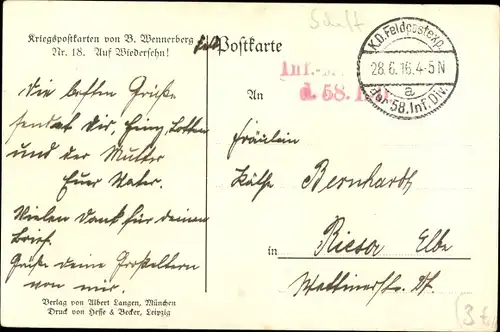 Kriegspostkarten von B. Wennerberg
Nr. 18. Auf Wiedersehn!
Postkarte
K.D. Feldpostexp.
28.6.16. 4-5 N
a
der 58. Inf. Div.
Inf.-
d. 58.
An
Die besten Grüße
sendet Dir, Heinz, Lotten
und der Mutter
Euer Vater.
Vielen Dank für deinen
Brief.
Grüße deine Großeltern
von mir.
Fräulein
Käthe Bernhardt
in Riesa Elbe
Verlag von Albert Langen, München
Druck von Hesse & Becker, Leipzig